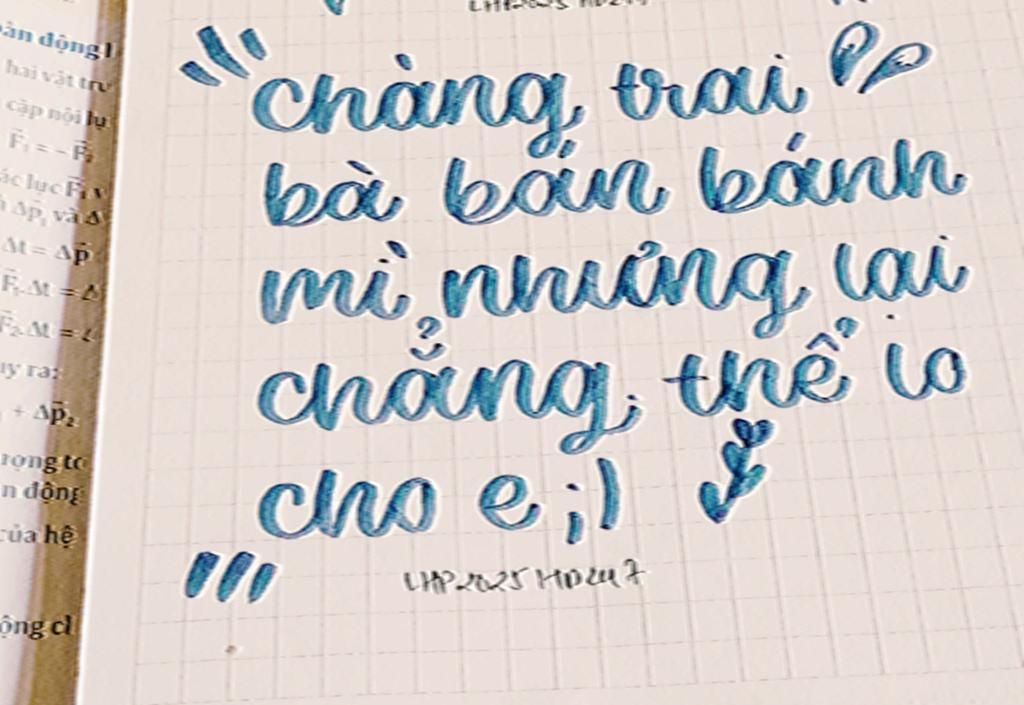 chàng trai
bà bán bánh
mì nhưng lại
chẳng thể lo
cho e ;)
LHP2025 HD247
ân động l
hai vật
cặp nội lự
F⃗₁ = - F⃗₂
ác lực F⃗₁ v
Δp⃗₁ và Δ
Δt = Δp⃗
F⃗₁.Δt = Δ
F⃗₂.Δt =
uy ra:
+ Δp⃗₂
rọng
n động
của hệ
ộng cl